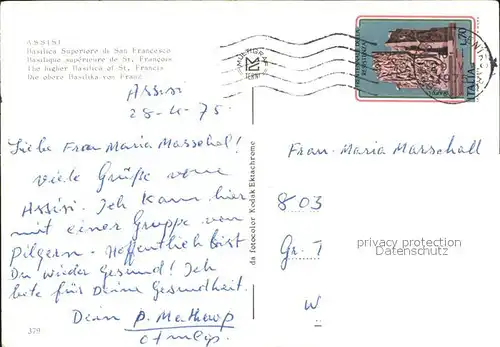 ASSISI
Basilica Superiore di San Francesco
Basilique supérieure de St. François
The higher Basilica of St. Francis
Die obere Basilika von Franz
Assisi
28-4-75
Liebe Frau Maria Marschal!
viele Grüße von
Assisi. Ich kam hier
mit einer Gruppe von
Pilgern. Hoffentlich bist
Du wieder Gesund! Ich
bete für Deine Gesundheit.
Dein P.
379
da fotocolor Kodak Ektachrome
L.70
ITALIA
Frau Maria Marschall
803
Gr. T
W
privacy protection
Datenschutz